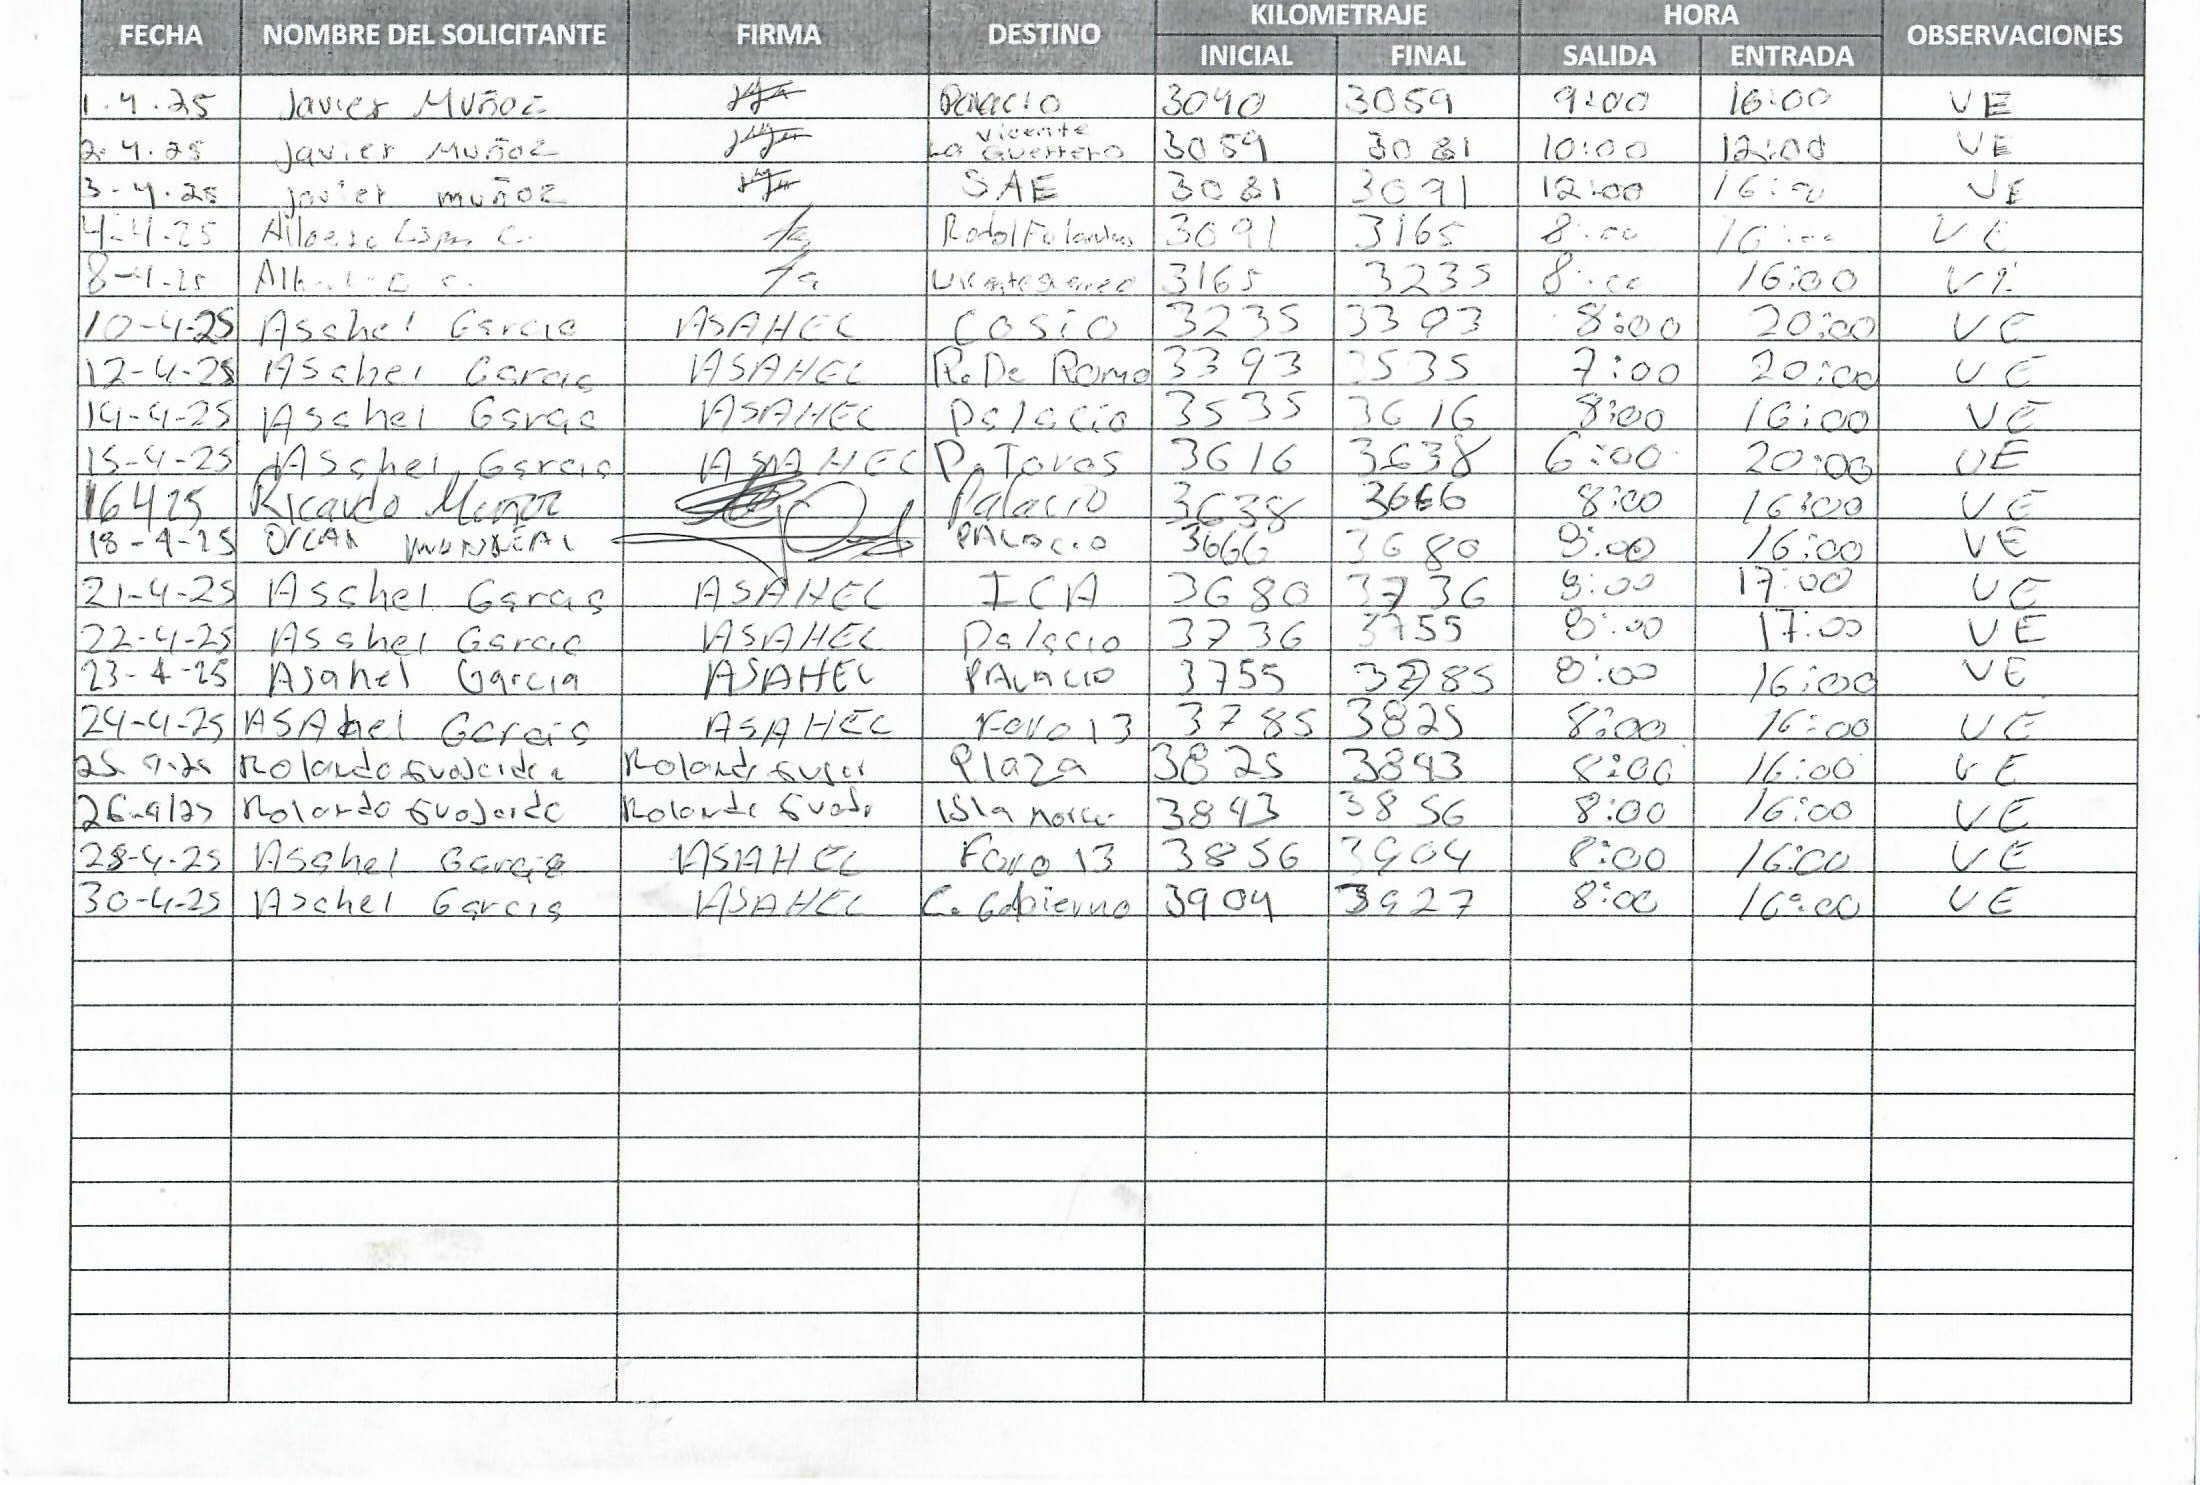 FECHA NOMBRE DEL SOLICITANTE FIRMA DESTINO KILOMETRAJE HORA OBSERVACIONES
INICIAL FINAL SALIDA ENTRADA
1.4.25 Javier Muñoz Palacio 3040 3059 9:00 16:00 VE
2.4.25 Javier Muñoz Vicente Guerrero 3059 3081 10:00 12:00 VE
3-4.25 javier muñoz SAE 3081 3091 12:00 16:00 VE
4-4-25 3091 3165 8:00 16:00 VE
8-4-25 3165 3235 8:00 16:00 VE
10-4-25 Asahel Garcia ASAHEL Cosio 3235 3393 8:00 20:00 VE
12-4-25 Asahel Garcia ASAHEL R. De Romo 3393 3535 7:00 20:00 VE
14-4-25 Asahel Garcia ASAHEL Palacio 3535 3616 8:00 16:00 VE
15-4-25 Asahel Garcia ASAHEL P. Toros 3616 3638 6:00 20:00 VE
16 4 25 Ricardo Muñoz Palacio 3638 3666 8:00 16:00 VE
18-4-25 PALACIO 3666 3680 8:00 16:00 VE
21-4-25 Asahel Garcia ASAHEL ICA 3680 3736 8:00 17:00 VE
22-4-25 Asahel Garcia ASAHEL Palacio 3736 3755 8:00 17:00 VE
23-4-25 Asahel Garcia ASAHEL PALACIO 3755 3785 8:00 16:00 VE
24-4-25 ASAhel Garcia ASAHEL Foro 13 3785 3825 8:00 16:00 VE
25.4.25 Rolando Rolando Plaza 3825 3843 8:00 16:00 VE
26-4/25 Rolando Rolando Isla 3843 3856 8:00 16:00 VE
28-4-25 Asahel Garcia ASAHEL Foro 13 3856 3904 8:00 16:00 VE
30-4-25 Asahel Garcia ASAHEL C. Gobierno 3904 3927 8:00 16:00 VE